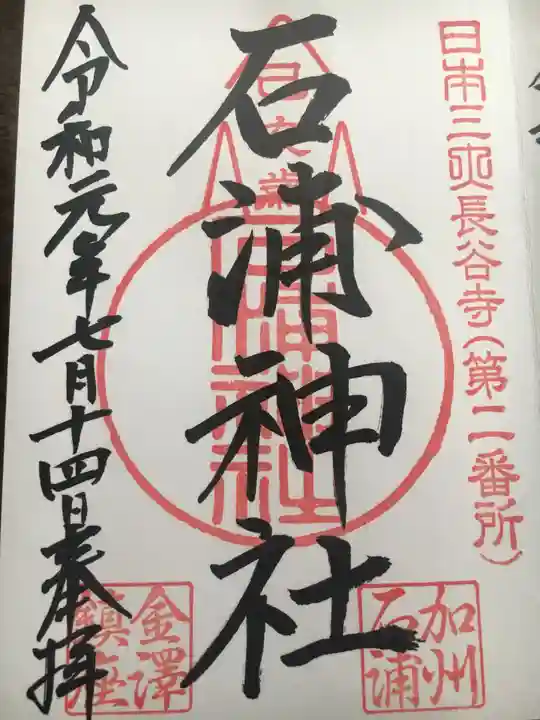 日本三大長谷寺(第二番所)
石浦神社
石浦神社
加州
石浦
令和元年七月十四日奉拝
金澤
鎮座